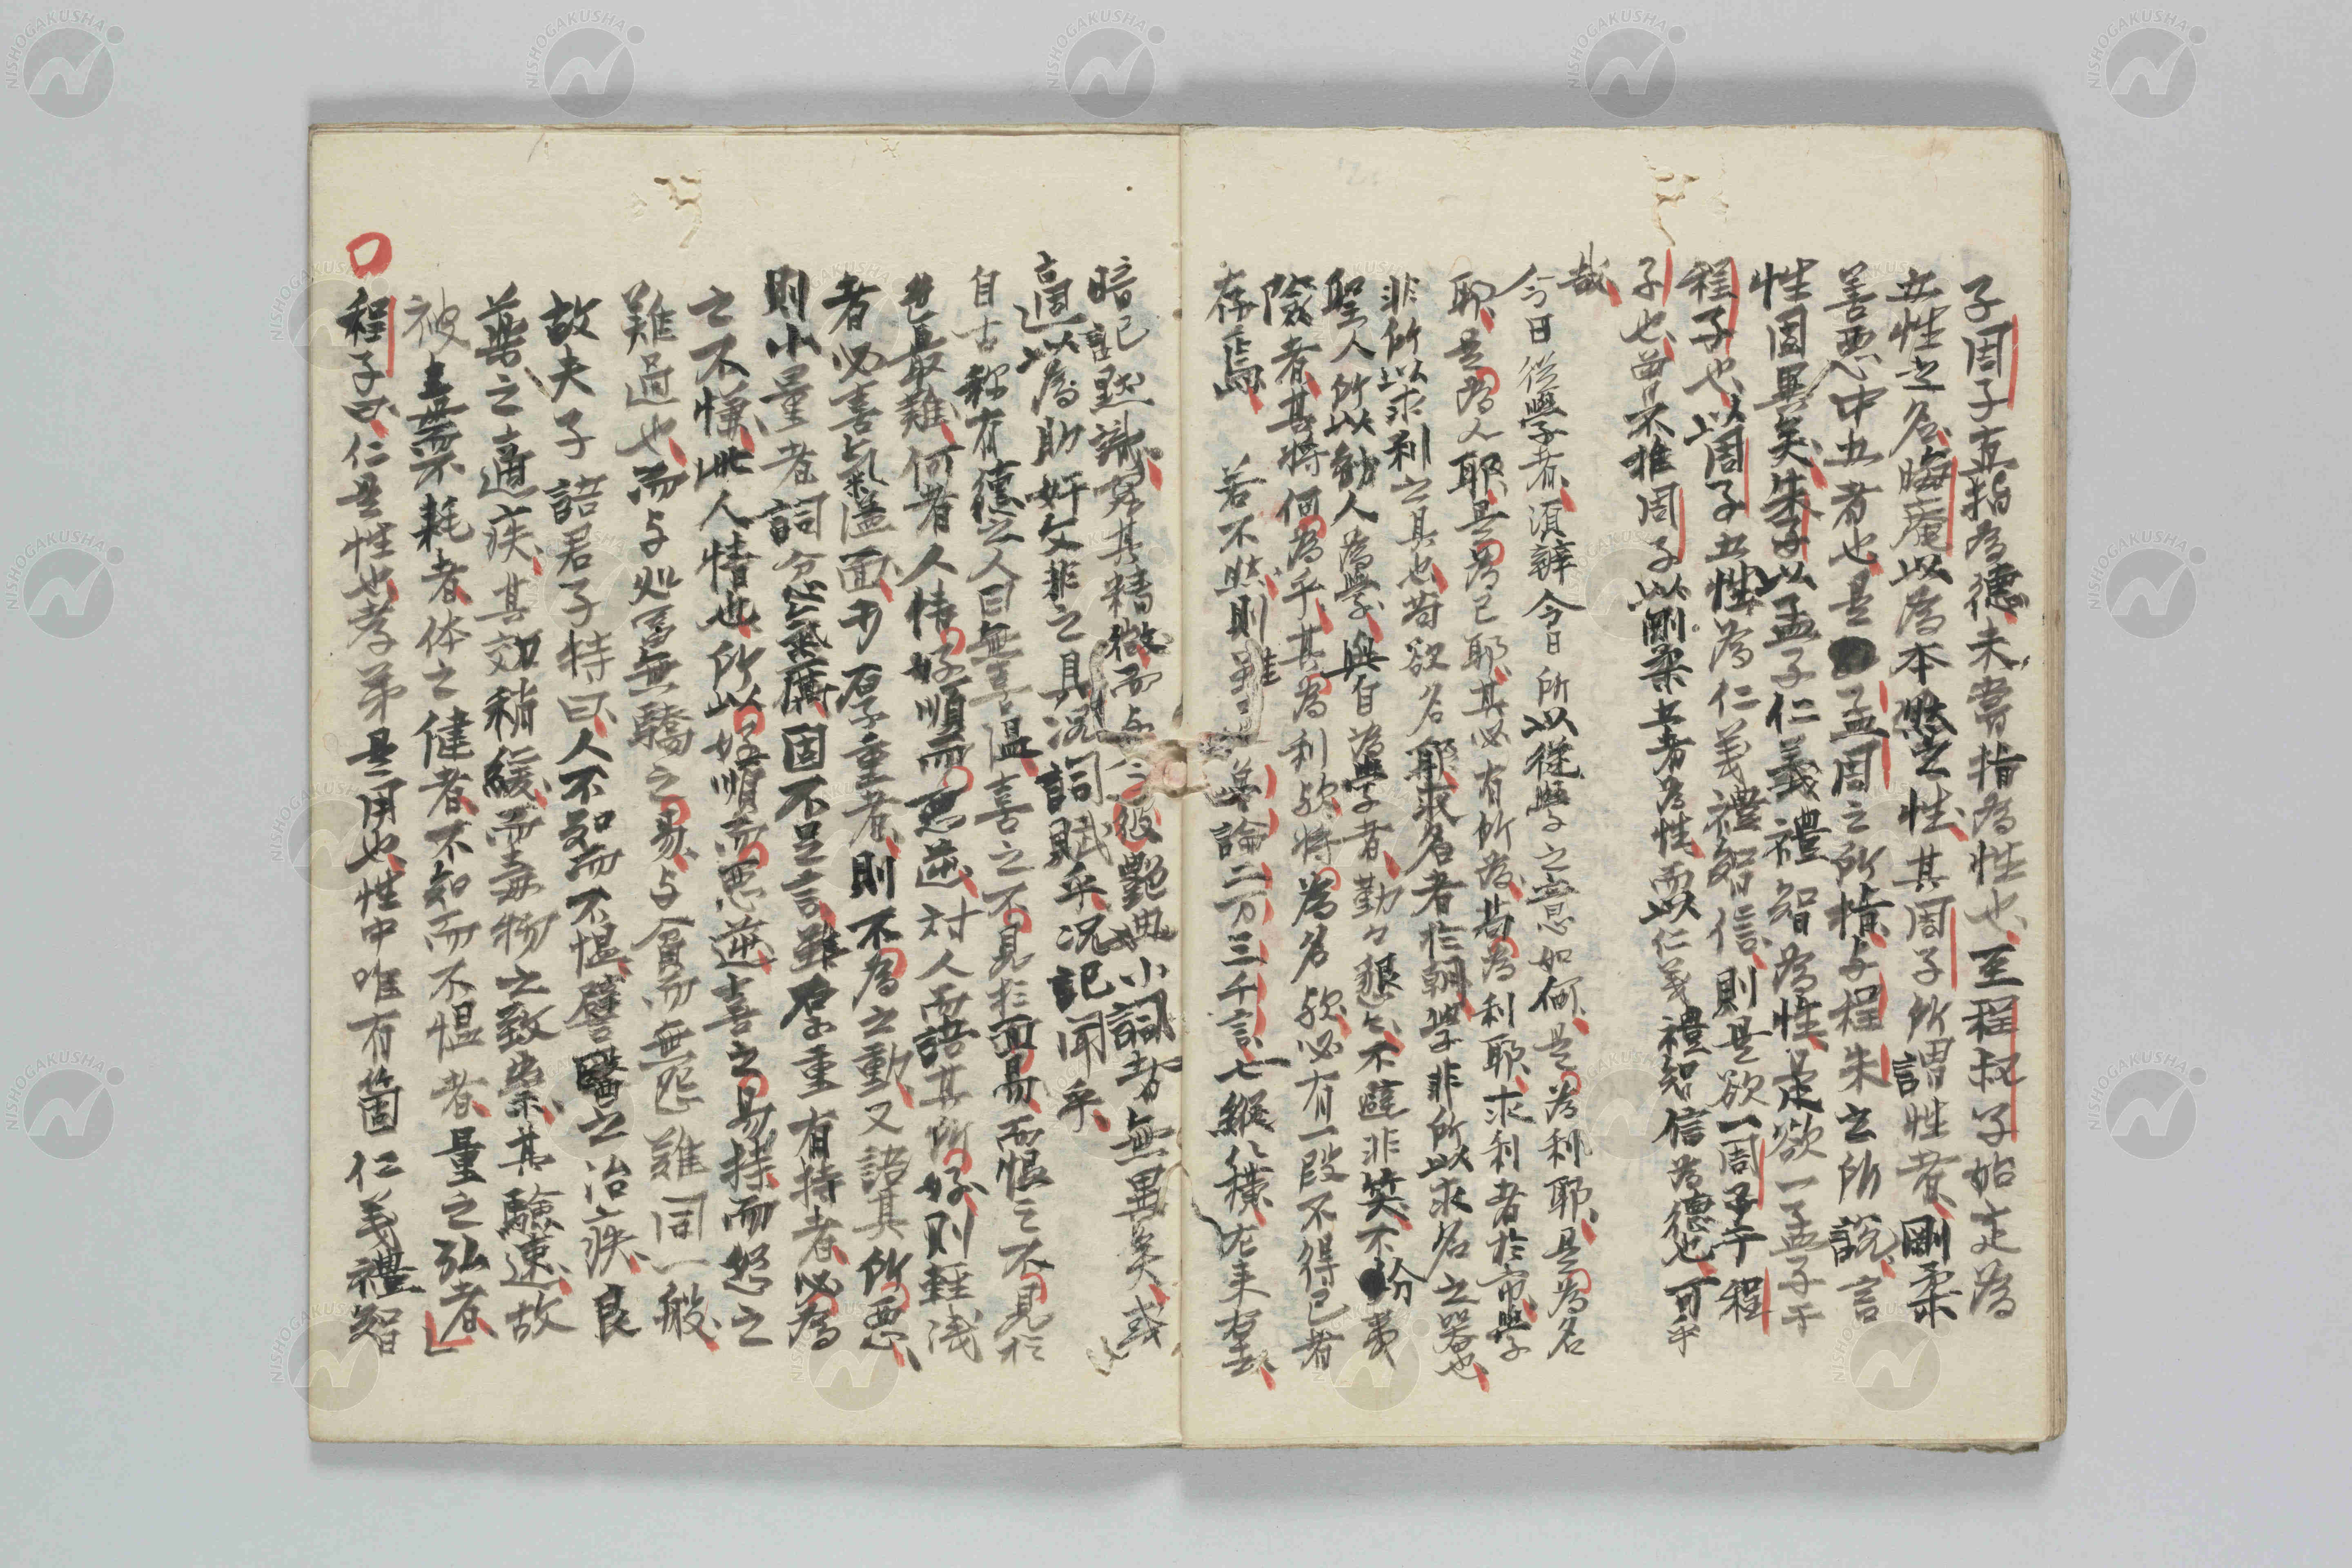 子周子直指為德未嘗指為性也至程叔子始定為
五性之名晦庵以為本然之性其周子所謂性者剛柔
善悪中五者也是孟周之所指与程朱之所說言
性固異矣朱子以孟子仁義禮智為性是欲一孟子于
程子也以周子五性為仁義禮智信則是欲一周子于程
子也曽不惟周子以剛柔五者為性而以仁義禮智信為德也可乎
哉
今日從學者須辨今日所以從學之意如何是為利耶是為名
耶是為人耶是為己耶其必有所為若為利耶求利者於市學
非所以求利之具也苟欲名耶求名者於朝學非所以求名之器也
聖人所以勧人為學與自為學者勤々懇々不避非笑不分夷
險者其將何為乎其為利歟將為名歟必有一段不得已者
存焉 若不然則雖語孟論二万三千言七縱八橫左来右去
暗記黙識究其精微而与彼艶曲小詞者無異矣或
適以為助奸文非之具况詞賦乎况記聞乎
自古称有德之人曰無喜慍喜之不見於面易而慍之不見於
色最難何者人情好順而悪逆対人而語其所好則軽浅
者必喜氣溢面厚重者則不為之動又語其所悪
則小量者詞忿氣厲固不足言雖厚重有持者必為
之不慊此人情也所以好順而悪逆喜之易持而怒之
難過也而与処富無驕之易与貧而無怨難同一般
故夫子語君子特曰人不知而不慍譬醫之治疾良
薬之適疾其效稍緩而毒物之致祟其驗速故
被毒而不耗者体之健者不知而不慍者量之弘者
程子曰仁是性也孝弟是用也性中唯有箇仁義禮智